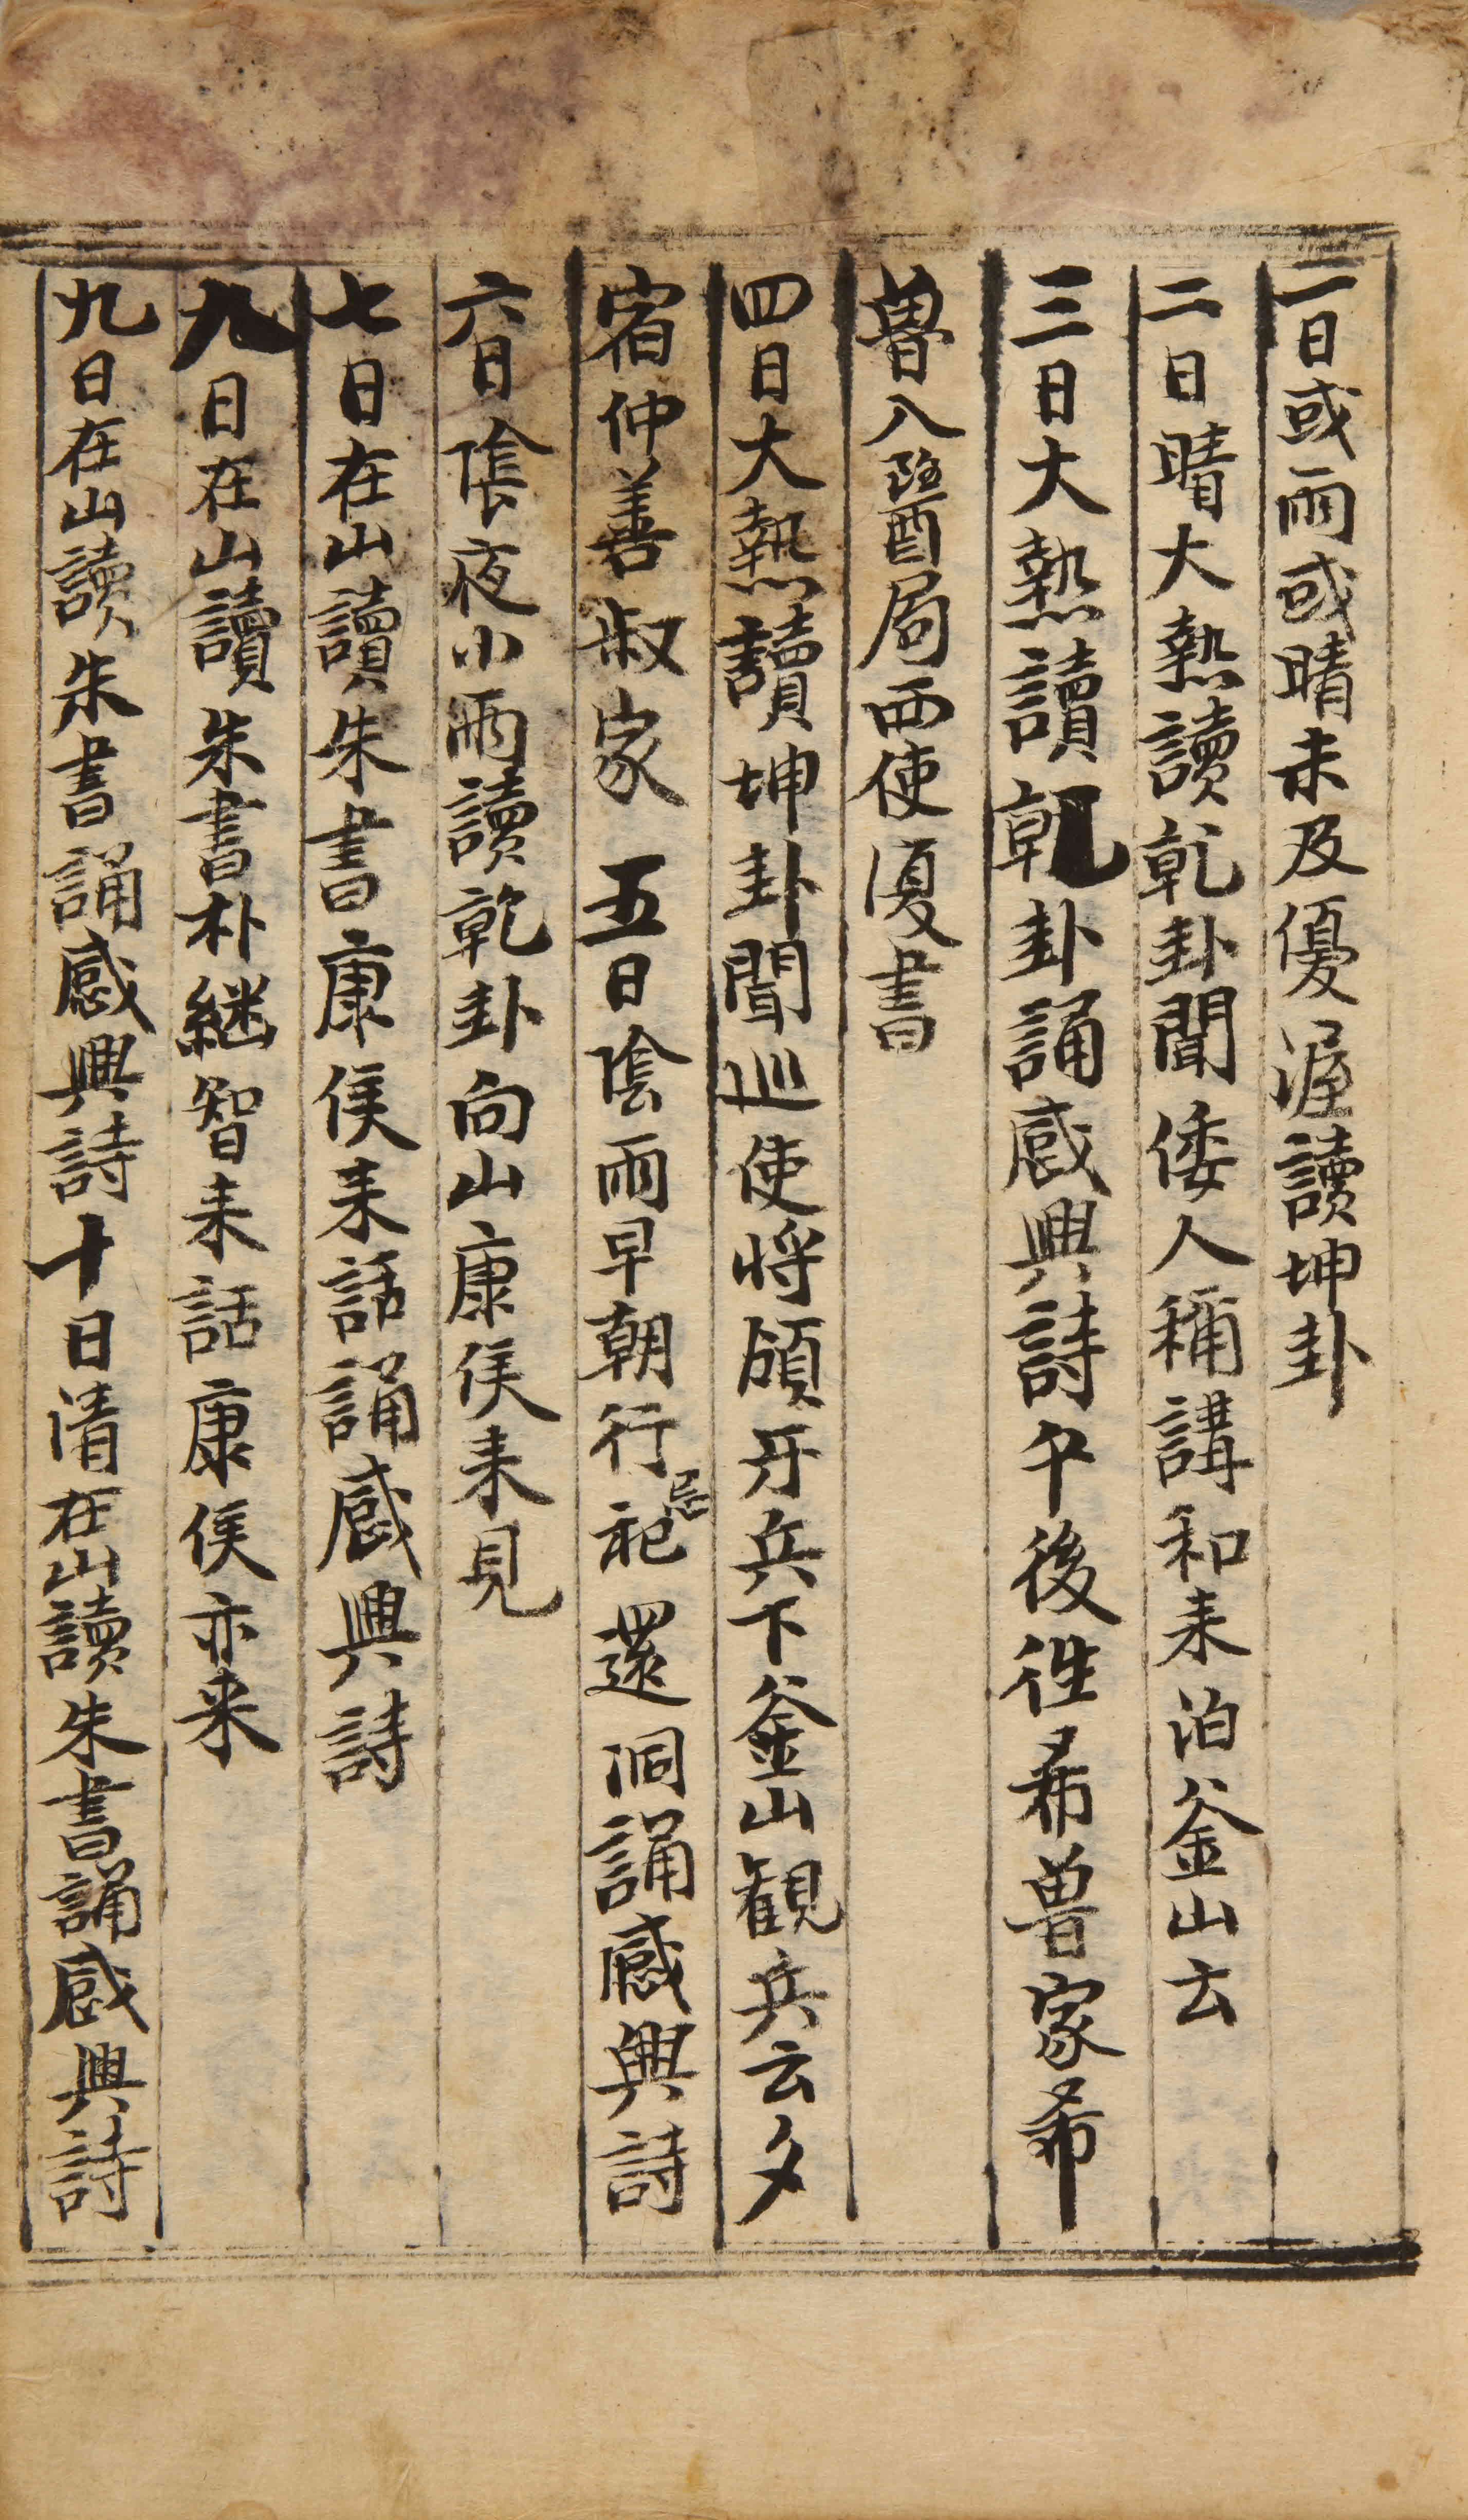 一日或雨或晴未及優渥讀坤卦
二日晴大熱讀乹卦聞倭人稱講和来泊釜山云
三日大熱讀乹卦誦感興詩午後徃希魯家希
魯入醫局西使復書
四日大熱讀坤卦聞巡使将領牙兵下釜山観兵云夕
宿仲善叔家 五日陰雨早朝行忌祀還洞誦感興詩
六日陰夜小雨讀乾卦向山康侯来見
七日在山讀朱書康侯来話誦感興詩
八日在山讀朱書朴継智来話康侯亦来
九日在山讀朱書誦感興詩十日清在山讀朱書誦感興詩